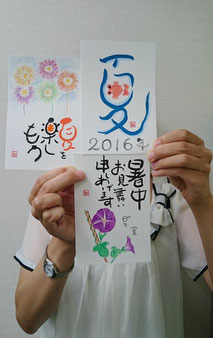 夏を
楽し
もう
夏
2016年
暑中
お見舞い
申し上げます